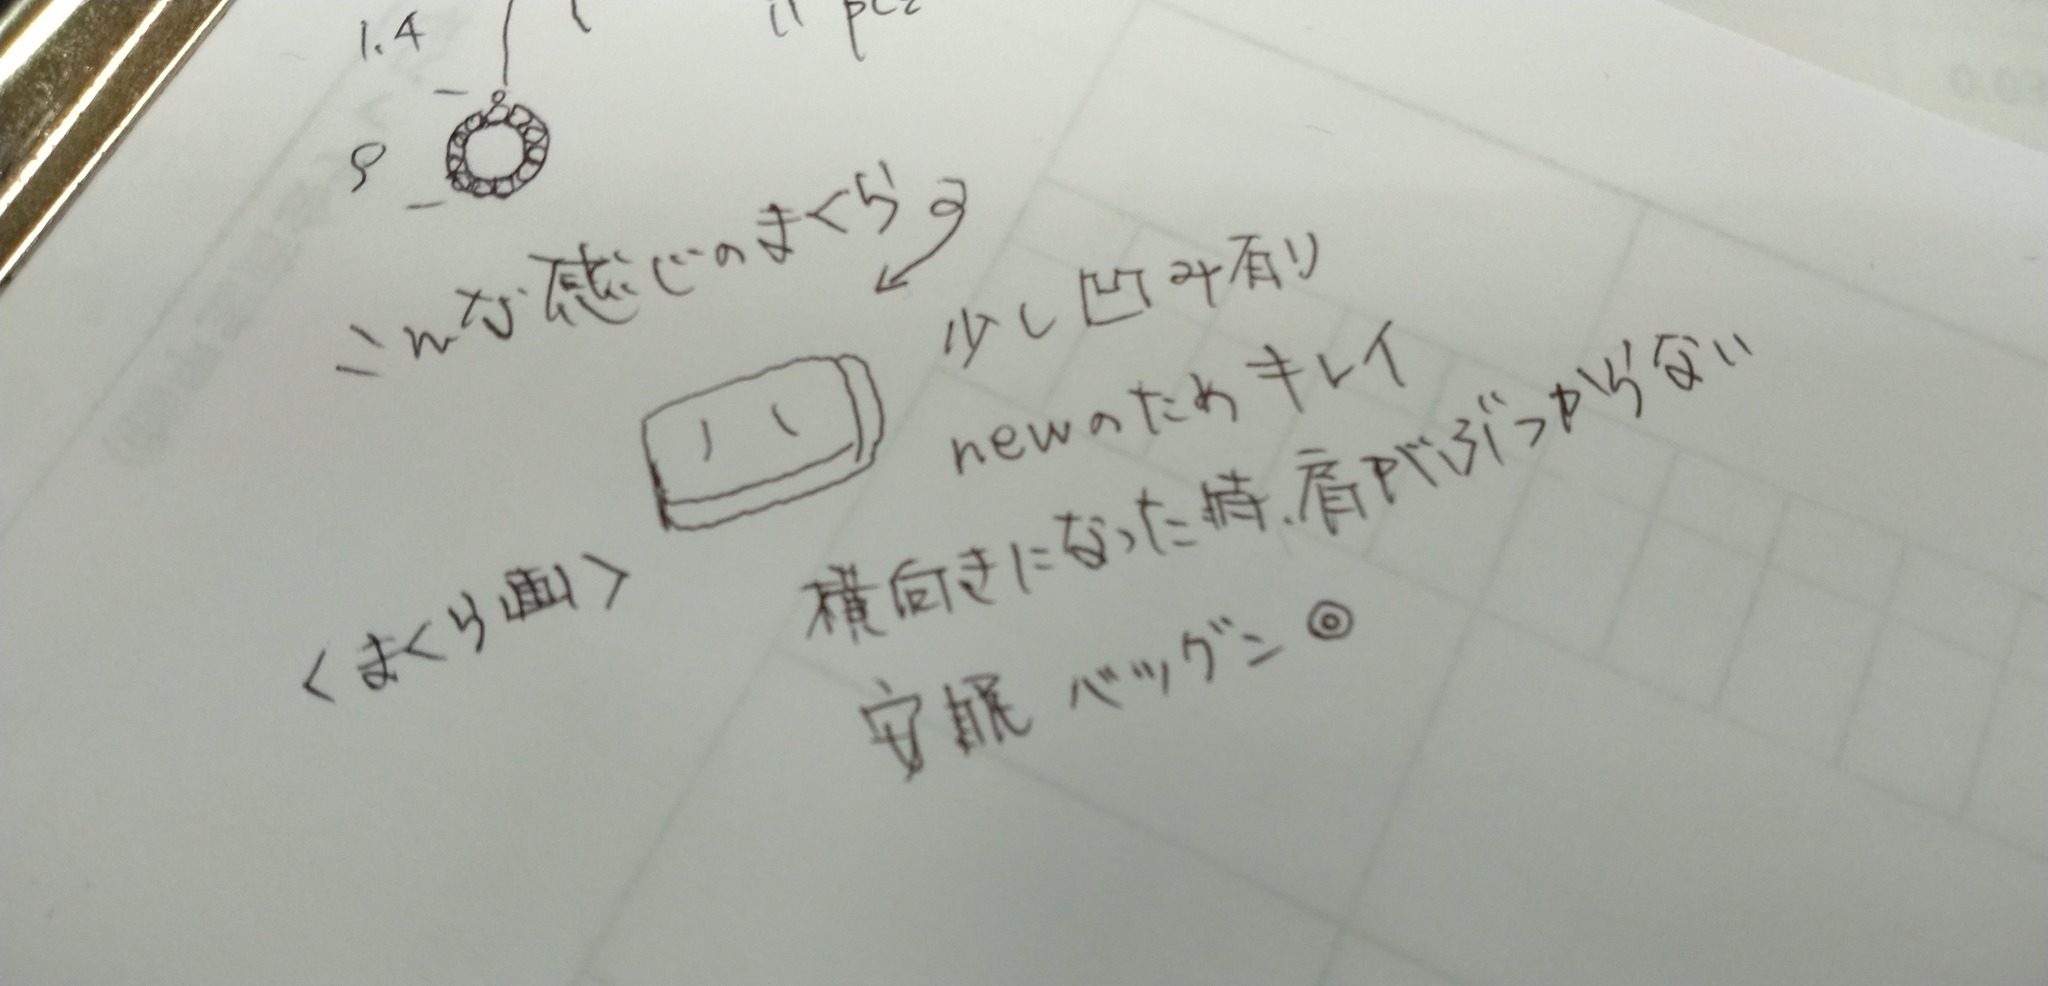 1.4
9
こんな感じのまくら
少し凹み有り
newのためキレイ
横向きになった時、肩がぶつからない
安眠 バツグン ◎
<まくら画>